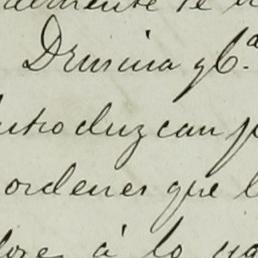 Drusina y C.ª
introduzcan p
ordenes que l
á lo